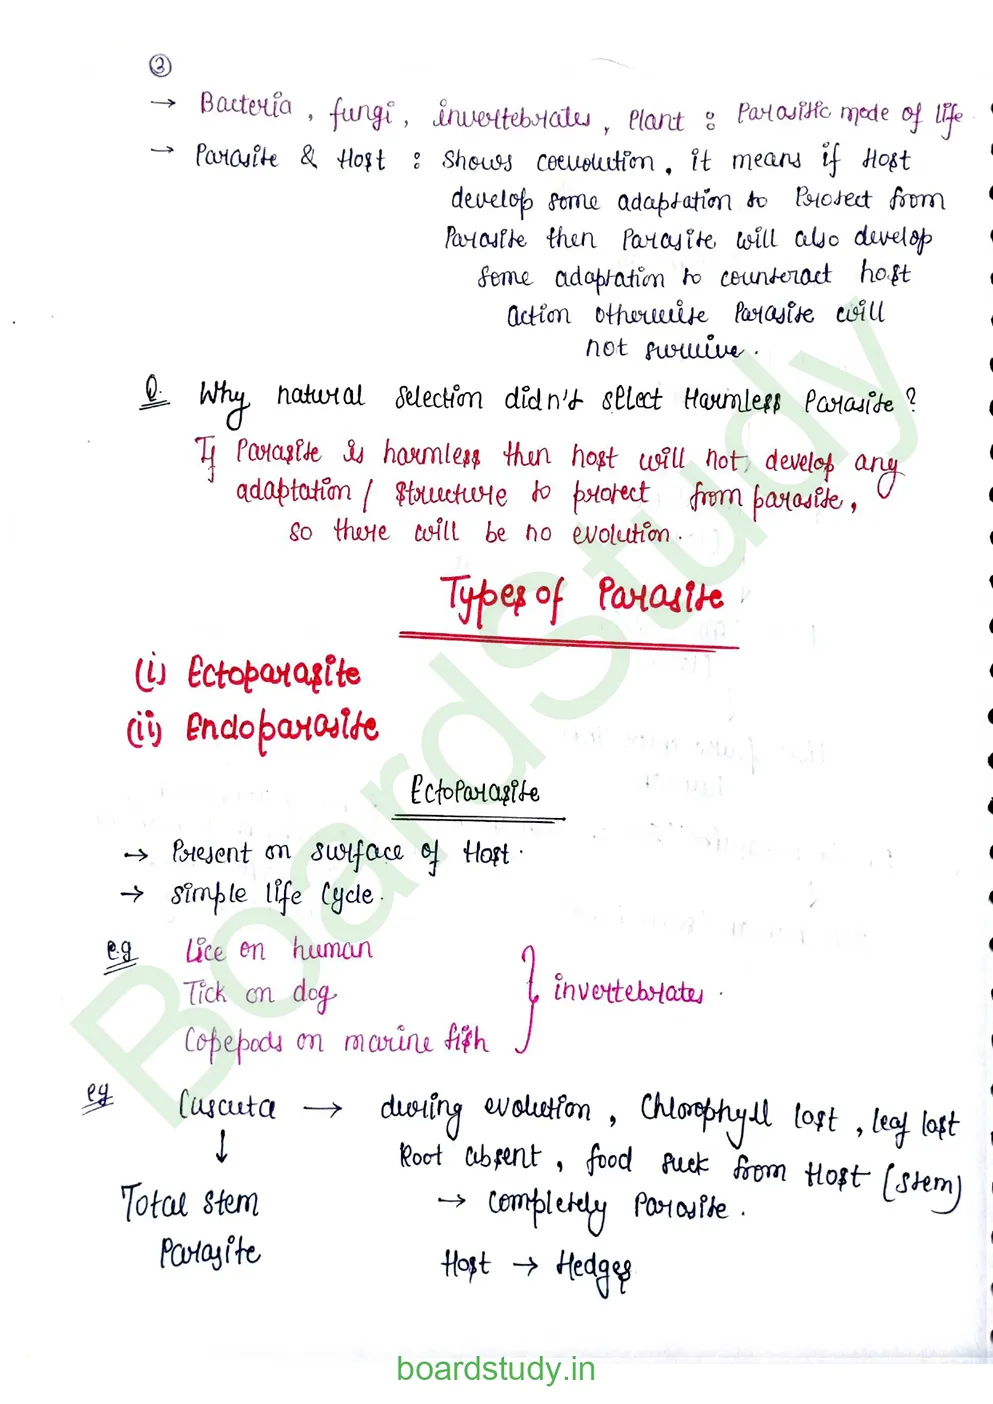 ③
→ Bacteria, fungi, invertebrates, Plant : Parasitic mode of life
→ Parasite & Host : Shows coevolution, it means if Host
develop some adaptation to Protect from
Parasite then Parasite will also develop
some adaptation to counteract host
action otherwise Parasite will
not survive.
Q. Why natural selection didn't select Harmless Parasite?
If Parasite is harmless then host will not, develop any
adaptation / structure to protect from parasite,
so there will be no evolution.
Types of Parasite
(i) Ectoparasite
(ii) Endoparasite
EctoParasite
→ Present on surface of Host.
→ simple life Cycle.
e.g Lice on human
Tick on dog
Copepods on marine fish
} invertebrates.
eg Cuscuta → during evolution, Chlorophyll lost, leaf lost
Root absent, food suck from Host (stem)
↓
Total stem → completely Parasite.
Parasite
Host → Hedges
BoardStudy
boardstudy.in